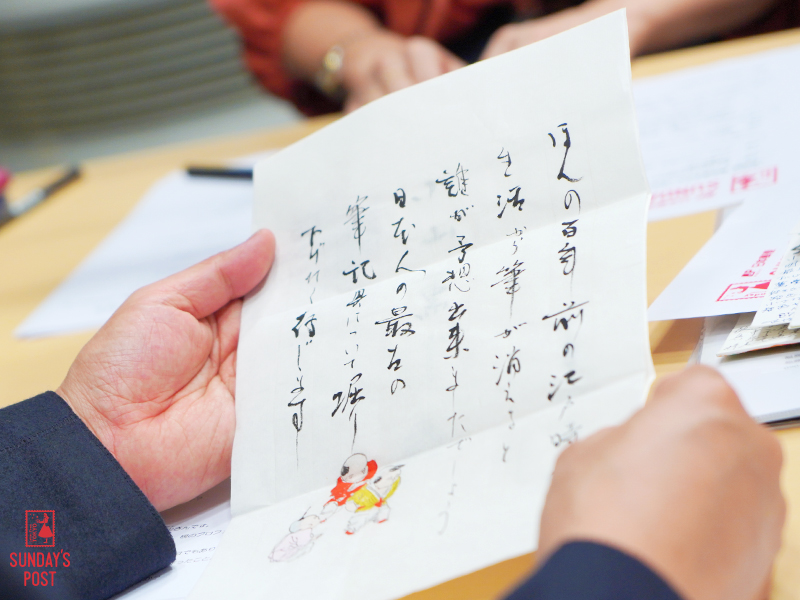 ほんの百年前の江戸時
生活から筆が消えると
誰が予想出来ましたでしょう
日本人の最古の
筆記具について堀り
下げたく存じます
SUNDAY'S
POST